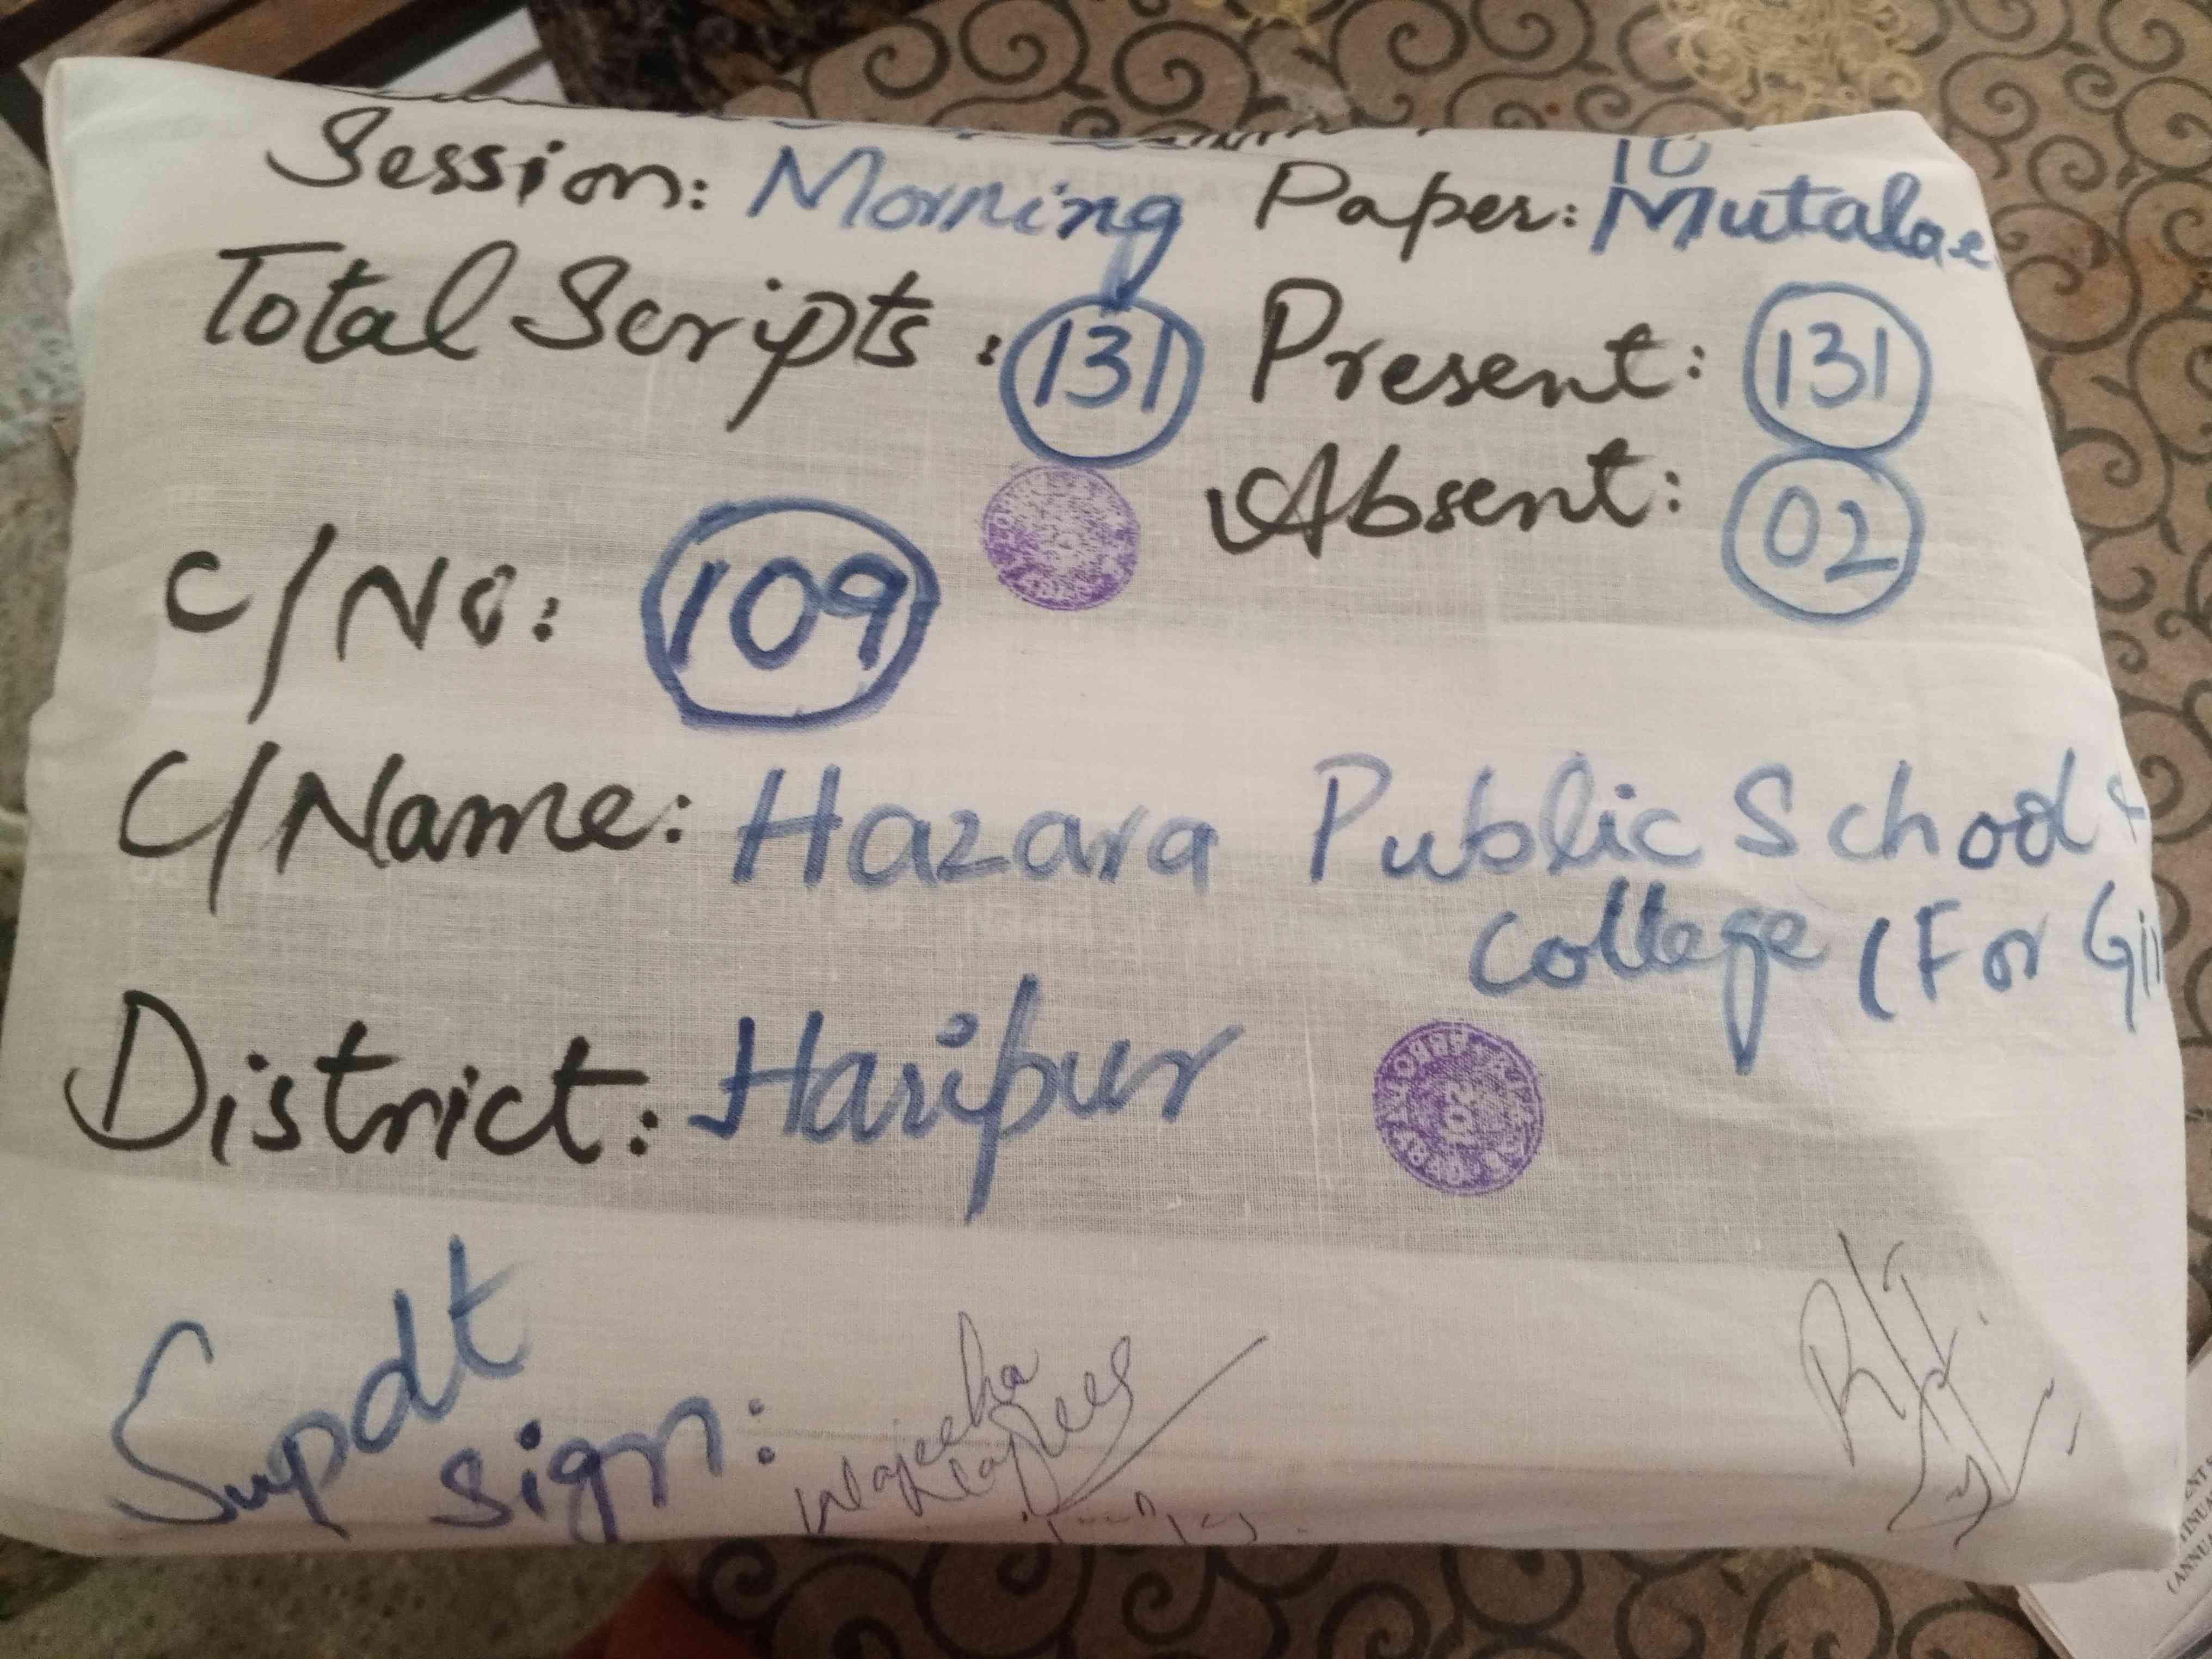 10
Session: Morning Paper: Mutalae
Total Scripts: 131 Present: 131
Absent: 02
C/No: 109
C/Name: Hazara Public School &
College (For Gir
District: Haripur
Supdt
Sign: Wajeeha